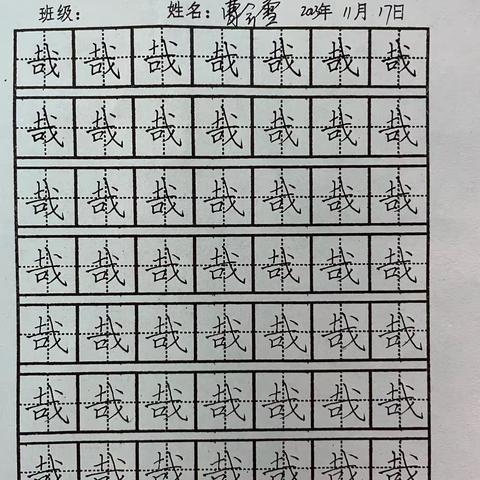 班级： 姓名： 2023年 11月 17日
哉 哉 哉 哉 哉 哉 哉
哉 哉 哉 哉 哉 哉 哉
哉 哉 哉 哉 哉 哉 哉
哉 哉 哉 哉 哉 哉 哉
哉 哉 哉 哉 哉 哉 哉
哉 哉 哉 哉 哉 哉 哉
哉 哉 哉 哉 哉 哉 哉